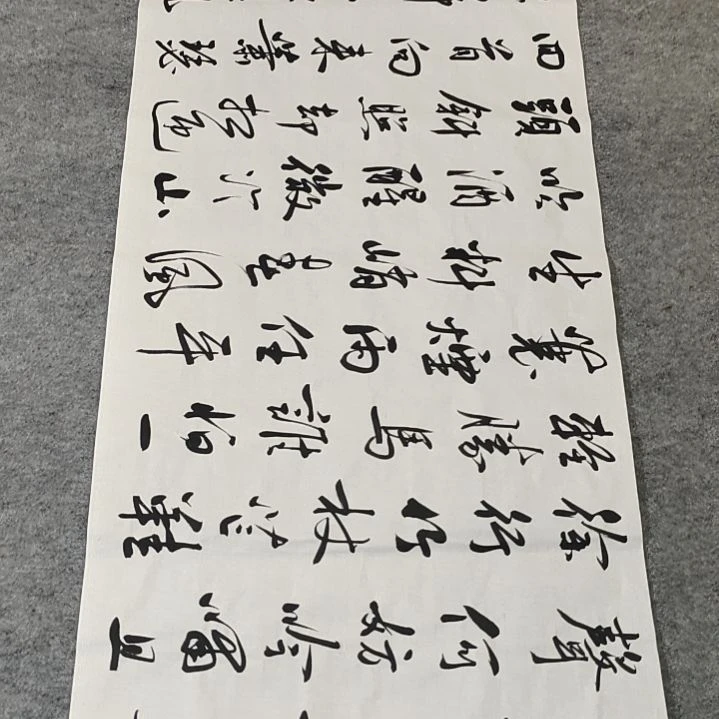 聲何妨吟嘯且
徐行竹杖芒鞋
輕勝馬誰怕一
蓑煙雨任平
生料峭春風
吹酒醒微冷山
頭斜照却相迎
回首向來蕭瑟